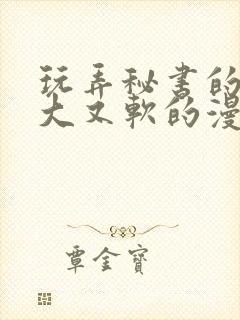 玩弄秘书的
大又軟的漫
覃金寶